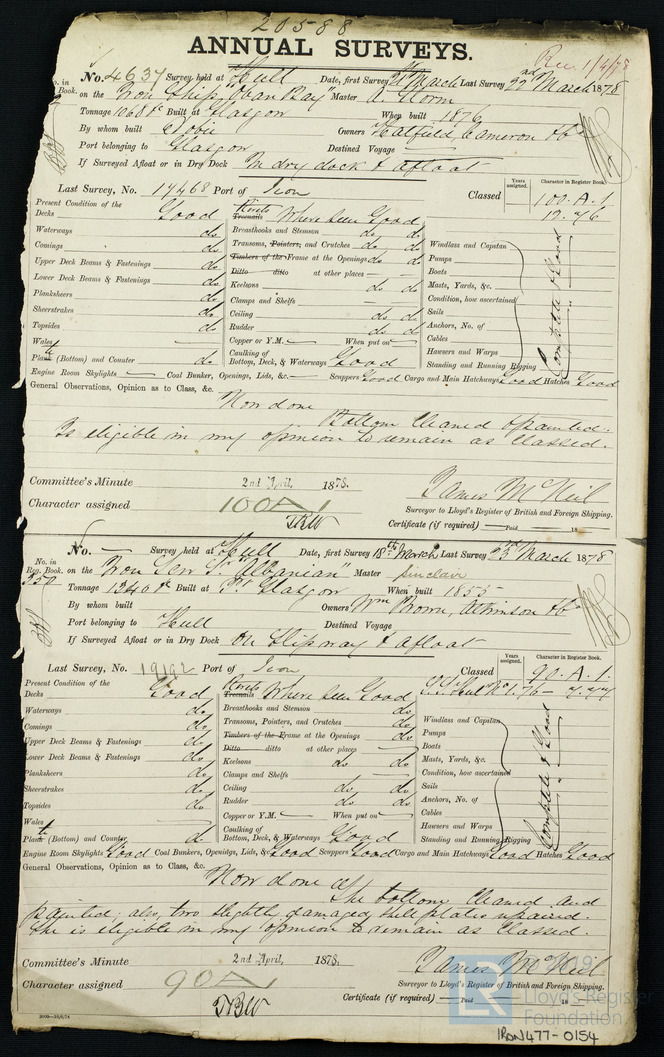 20588
ANNUAL SURVEYS.
Rec 1/4/78
No. 4637 Survey held at Hull Date, first Survey 21st March Last Survey 22nd March 1878
No. in
Reg. Book. on the Iron Ship "Oban Bay" Master A. Norm
Tonnage 1068 Built at Glasgow When built 1876
By whom built Dobie Owners Hatfield Cameron & Co
Port belonging to Glasgow Destined Voyage
If Surveyed Afloat or in Dry Dock In dry dock & afloat
Last Survey, No. 14468 Port of Iron Classed Years assigned. Character in Register Book.
100.A.1
12.76
Present Condition of the
Decks Good Rivets Treenails Where seen Good
Waterways do Breasthooks and Stemson do do
Comings do Transoms, Pointers, and Crutches do do Windlass and Capstan
Upper Deck Beams & Fastenings do Timbers of the Frame at the Openings do do Pumps
Lower Deck Beams & Fastenings do Ditto ditto at other places Boats
Planksheers do Keelsons do do Masts, Yards, &c.
Sheerstrakes do Clamps and Shelfs Condition, how ascertained
Topsides do Ceiling do do Sails
Wales Rudder do do Anchors, No. of
Plate (Bottom) and Counter do Copper or Y.M. When put on Cables
Caulking of
Bottom, Deck, & Waterways Good Hawsers and Warps
Standing and Running Rigging
Complete & Good
Engine Room Skylights Coal Bunker, Openings, Lids, &c. Scuppers Good Cargo and Main Hatchways Good Hatches Good
General Observations, Opinion as to Class, &c.
Now done
Bottom cleaned & painted.
Is eligible in my opinion to remain as classed.
Committee's Minute 2nd April, 1878.
Character assigned 100A1
TBW
James McNeil
Surveyor to Lloyd's Register of British and Foreign Shipping.
Certificate (if required) Paid 18
No. Survey held at Hull Date, first Survey 18th March Last Survey 23rd March 1878
No. in
Reg. Book. on the Iron Scw Sr "Albanian" Master Sinclair
350 Tonnage 1340 Built at Glasgow When built 1855
By whom built Owners Wm Brown, Atkinson & Co
Port belonging to Hull Destined Voyage
If Surveyed Afloat or in Dry Dock On slipway & afloat
Last Survey, No. 19192 Port of Iron Classed Years assigned. Character in Register Book.
90.A.1.
Present Condition of the
Decks Good Rivets Treenails Where seen Good
Waterways do Breasthooks and Stemson do
Comings do Transoms, Pointers, and Crutches do Windlass and Capstan
Upper Deck Beams & Fastenings do Timbers of the Frame at the Openings do Pumps
Lower Deck Beams & Fastenings do Ditto ditto at other places Boats
Planksheers do Keelsons do do Masts, Yards, &c.
Sheerstrakes do Clamps and Shelfs Condition, how ascertained
Topsides do Ceiling do do Sails
Wales Rudder do do Anchors, No. of
Plate (Bottom) and Counter d. Copper or Y.M. When put on Cables
Caulking of
Bottom, Deck, & Waterways Good Hawsers and Warps
Standing and Running Rigging
Complete & Good
Engine Room Skylights Good Coal Bunkers, Openidgs, Lids, &c Good Scuppers Good Cargo and Main Hatchways Good Hatches Good
General Observations, Opinion as to Class, &c.
Now done
The bottom cleaned and
painted; also, two slightly damaged hull plates repaired.
She is eligible in my opinion to remain as classed.
Committee's Minute 2nd April, 1878.
Character assigned 90A1
TBW
James McNeil
Surveyor to Lloyd's Register of British and Foreign Shipping.
Certificate (if required) Paid 18
LR
Lloyd's Register
Foundation
IRON477-0154